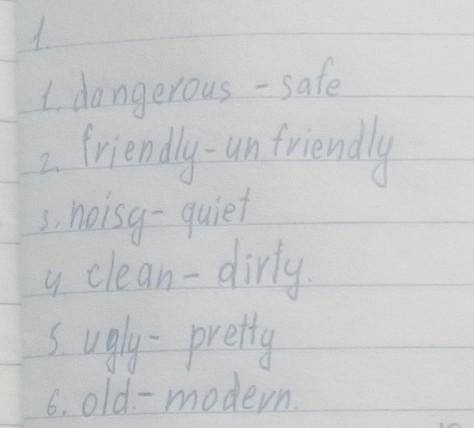 1.
1. dangerous - safe
2. friendly - un friendly
3. noisy - quiet
4 clean - dirty.
5. ugly - pretty
6. old - modern.